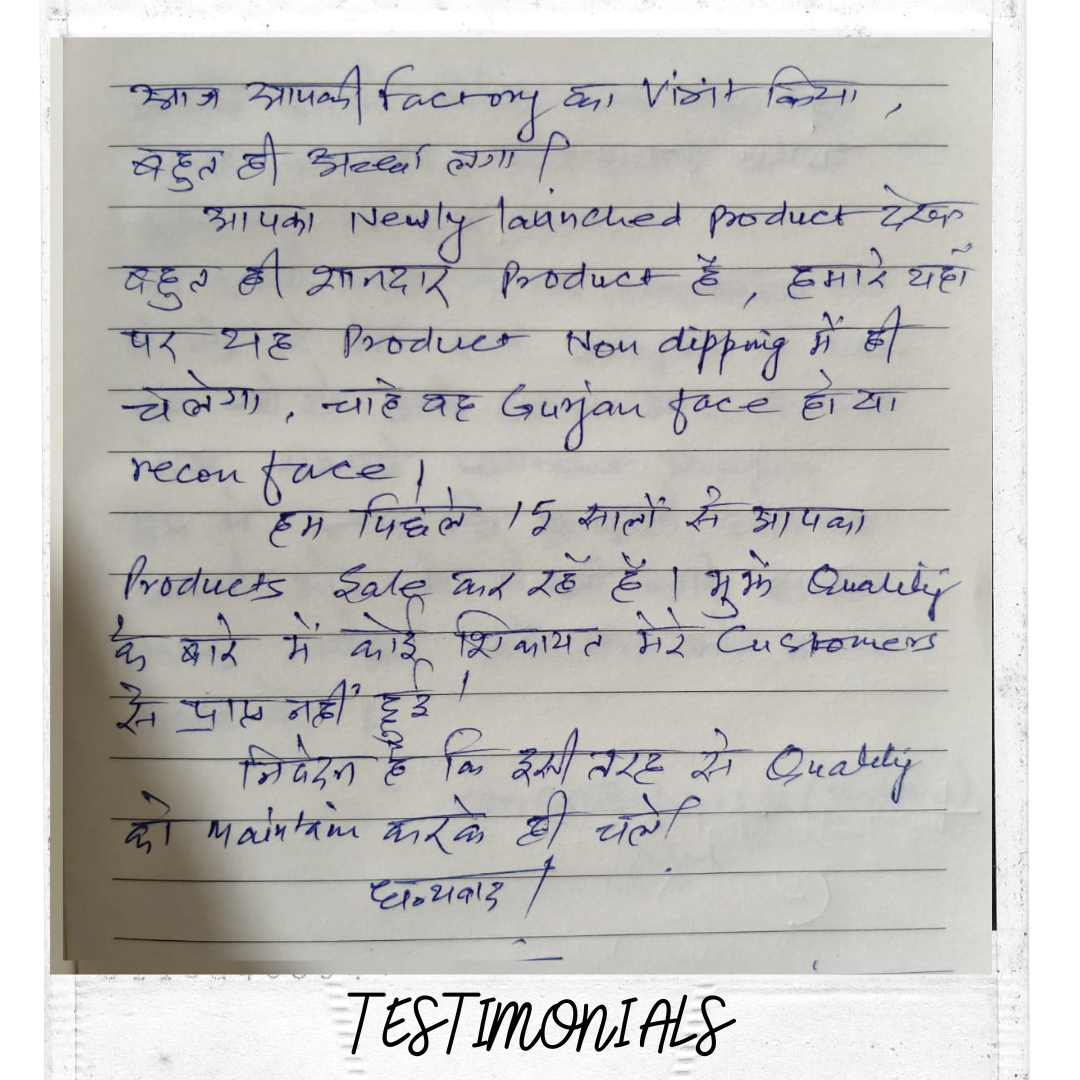 आज आपकी factory का Visit किया ,
बहुत ही अच्छा लगा।
आपका Newly launched product देखा
बहुत ही शानदार Product है , हमारे यहाँ
पर यह Product Non dipping में ही
चलेगा , चाहे वह Gurjan face हो या
recon face।
हम पिछले 15 सालों से आपका
Products Sale कर रहें हैं। मुझे Quality
के बारे में कोई शिकायत मेरे Customers
से प्राप्त नहीं हुई।
निवेदन है कि इसी तरह से Quality
को maintain करके ही चले।
धन्यवाद।
TESTIMONIALS